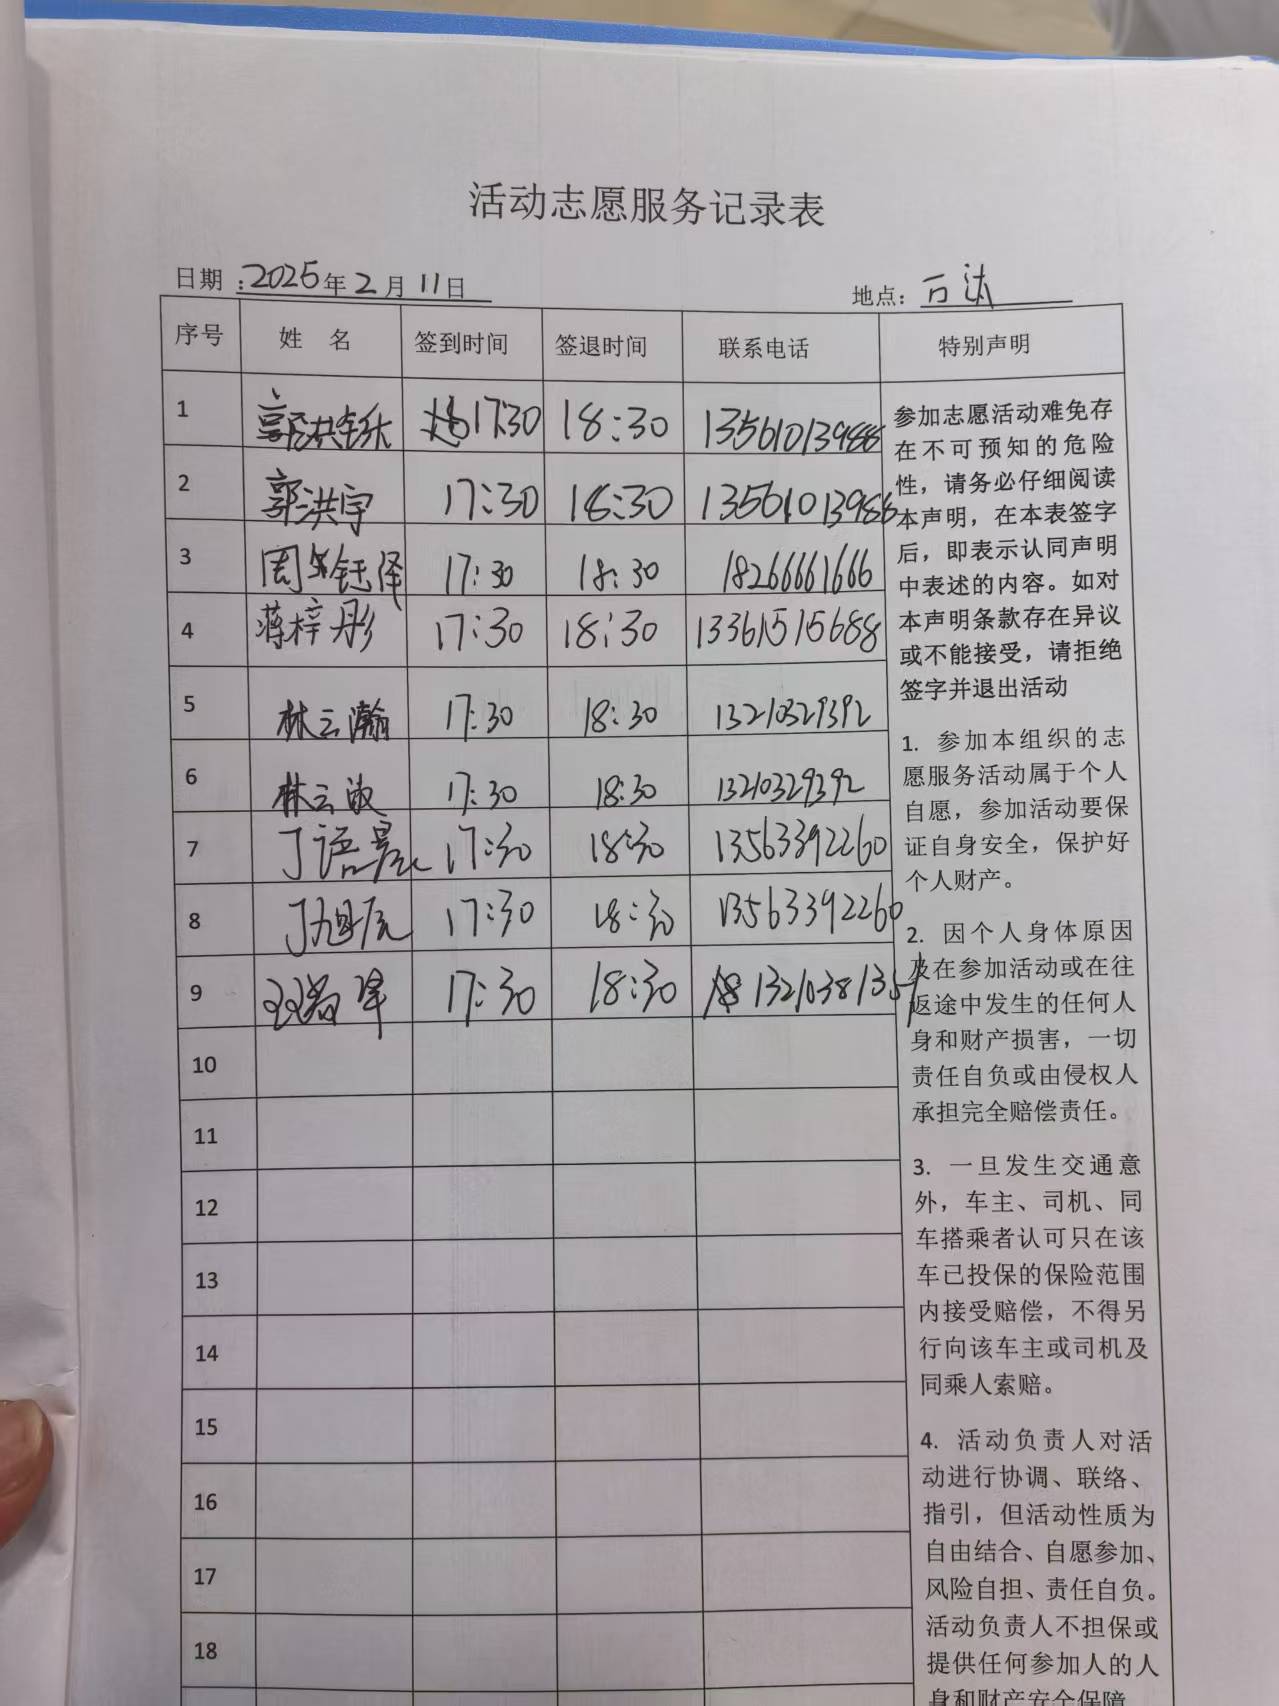 活动志愿服务记录表
日期：2025年2月11日 地点：万达
序号 姓 名 签到时间 签退时间 联系电话 特别声明
1 郭洪 17:30 18:30 13561013988
2 郭洪宇 17:30 18:30 13561013988
3 周钰泽 17:30 18:30 18266661666
4 蒋梓彤 17:30 18:30 13361515688
5 林云瀚 17:30 18:30 13210329392
6 林云 17:30 18:30 13210329392
7 丁语晨 17:30 18:30 13563392260
8 丁旭辰 17:30 18:30 13563392260
9 17:30 18:30 13210381351
10
11
12
13
14
15
16
17
18
参加志愿活动难免存
在不可预知的危险
性，请务必仔细阅读
本声明，在本表签字
后，即表示认同声明
中表述的内容。如对
本声明条款存在异议
或不能接受，请拒绝
签字并退出活动
1. 参加本组织的志
愿服务活动属于个人
自愿，参加活动要保
证自身安全，保护好
个人财产。
2. 因个人身体原因
及在参加活动或在往
返途中发生的任何人
身和财产损害，一切
责任自负或由侵权人
承担完全赔偿责任。
3. 一旦发生交通意
外，车主、司机、同
车搭乘者认可只在该
车已投保的保险范围
内接受赔偿，不得另
行向该车主或司机及
同乘人索赔。
4. 活动负责人对活
动进行协调、联络、
指引，但活动性质为
自由结合、自愿参加、
风险自担、责任自负。
活动负责人不担保或
提供任何参加人的人
身和财产安全保障